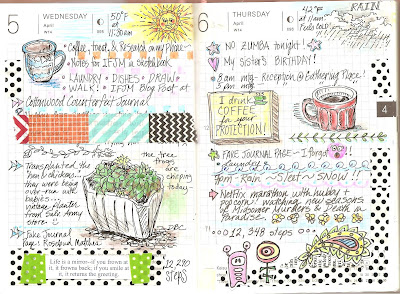 5
WEDNESDAY
April
W14
50°F
at
11:30 AM
• Coffee, toast & Research on my Phone
• Notes for IFJM in Sketchbook
• LAUNDRY • DISHES • DRAW •
• WALK! • IFJM Blog Post at
Cottonwood Counterfeit Journal
Transplanted the
"hen & chickens"!
they were being
over-run with
babies...
vintage planter
from Salv. Army
Store
the tree
frogs
are
chirping
today
Fake Journal
Page: Rosebud Mathilea
Life is a mirror–if you frown at
it, it frowns back; if you smile at
it, it returns the greeting.
steps
6
THURSDAY
April
W14
42°F
at 11am
Feels cold!
RAIN
NO ZUMBA tonight!
My Sister's BIRTHDAY!
8am mtg - Reception @ Gathering Place!
I drink
COFFEE
for your
PROTECTION!
4
FAKE JOURNAL PAGE - I forgot!
rain ~ Rain ~ Sleet ~ SNOW!!
Netflix marathon with hubby &
popcorn! watching new seasons
of Midsomer Murders
Paradise
12,348 steps